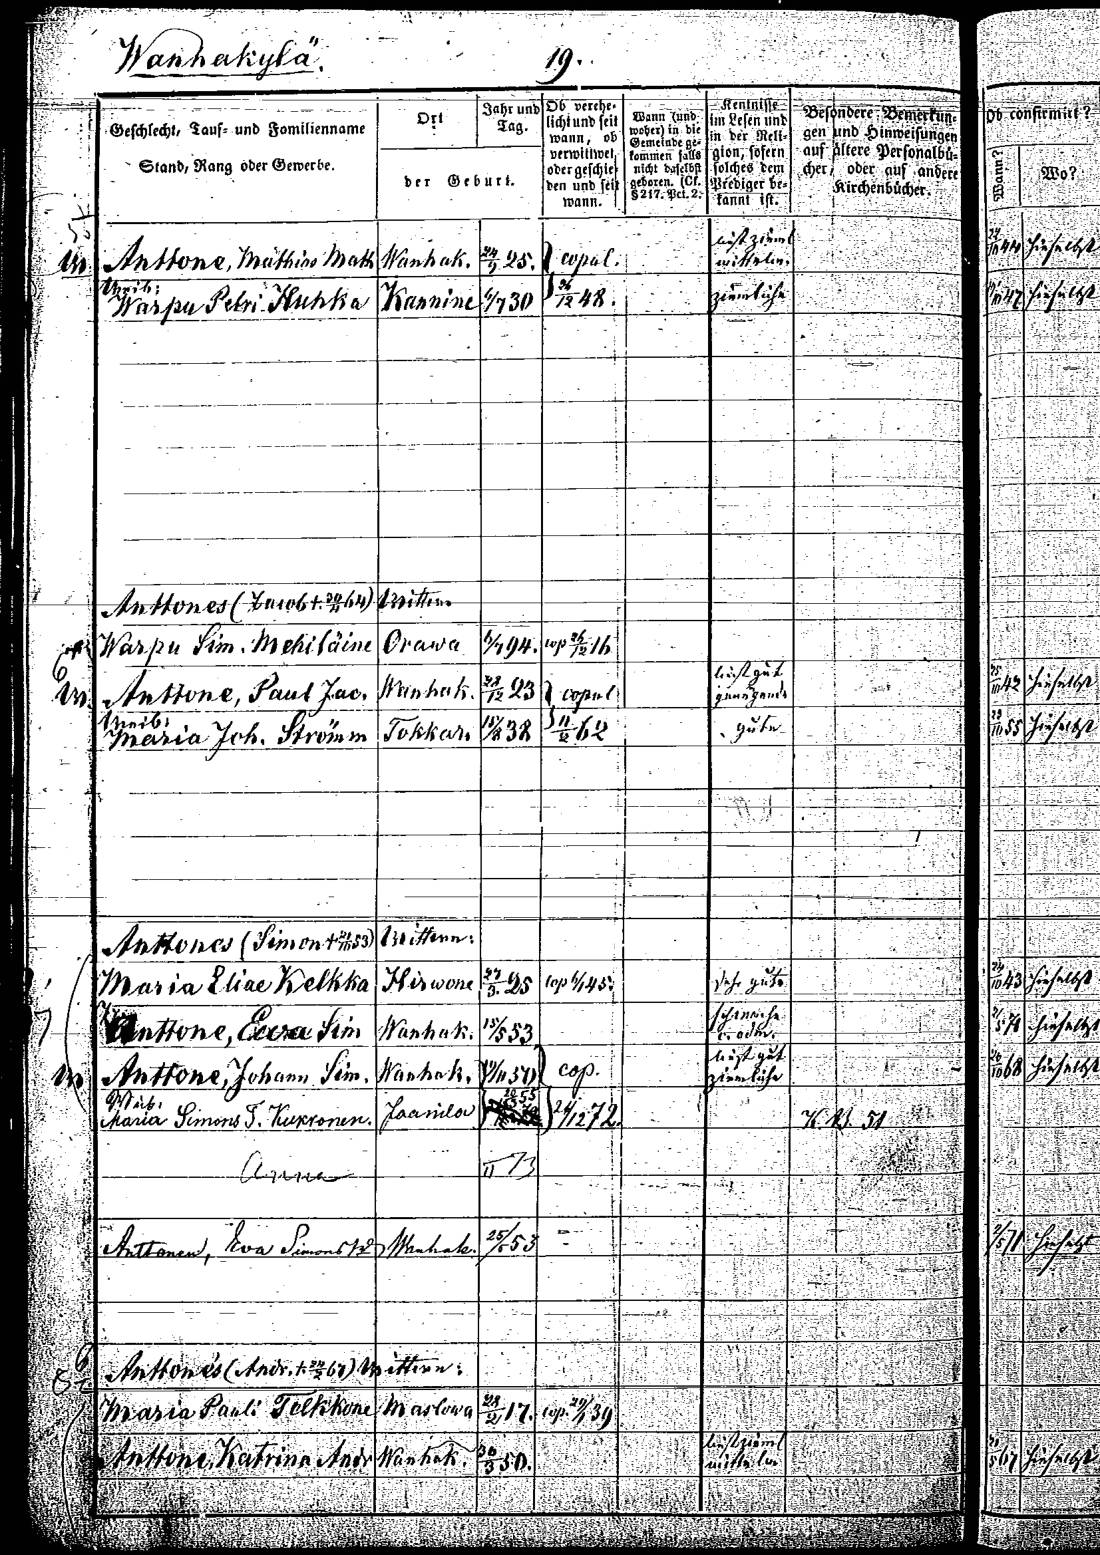 Wanhakylä.
19.
Geschlecht, Tauf- und Familienname
Stand, Rang oder Gewerbe.
Ort
Jahr und Tag.
der Geburt.
Ob verehe-
licht und seit
wann, ob
verwittwet
oder geschie-
den und seit
wann.
Wann (und
woher) in die
Gemeinde ge-
kommen falls
nicht daselbst
geboren. (Cf.
§ 217. Pct. 2.
Kentnisse
im Lesen und
in der Reli-
gion, sofern
solches dem
Prediger be-
kannt ist.
Besondere Bemerkun-
gen und Hinweisungen
auf ältere Personalbü-
cher, oder auf andere
Kirchenbücher.
Ob confirmirt?
Wann?
Wo?
Anttone, Mathias Math Wanhak. 24/2 25. copul. liest zieml mittelm. 44 hieselbst
Weib:
Warpu Petri Huhka Kannine 4/7 30 26/12 48. ziemliche 47 hieselbst
Anttones (Jacob + 64) Wittwe
Warpu Sim. Mehiläine Orawa 94. cop 26/12 16
Anttone, Paul Jac. Wanhak. 28/12 23 copul liest gut genügend. 42 hieselbst
Weib:
Maria Joh. Strömm Tokkar. 15/8 38 11/2 62 gute 55 hieselbst
Anttones (Simon + 53) Wittwe:
Maria Eliae Kelkka Hirwone 27/3. 25 cop 45. sehr gute 24/10 43 hieselbst
Anttone, Eva Sim Wanhak. 15/5 53 schwache 71 hieselbst
Anttone, Johann Sim. Wanhak. 50 cop. liest gut ziemliche 68 hieselbst
Weib.
Maria Simons T. Kukkonen. Jaanila 55 24/12 72. K. B. 51
Anna 11 73
Anttonen, Eva Simons Wanhak. 25/5 53 2/5 71 hieselbst
Anttones (Andr. + 67) Wittwe:
Maria Pauli Tolkkone Maslowa 28/2 17. cop. 39
Anttone, Katrina Andr Wanhak. 30/3 50. liest zieml mittelm 67 hieselbst